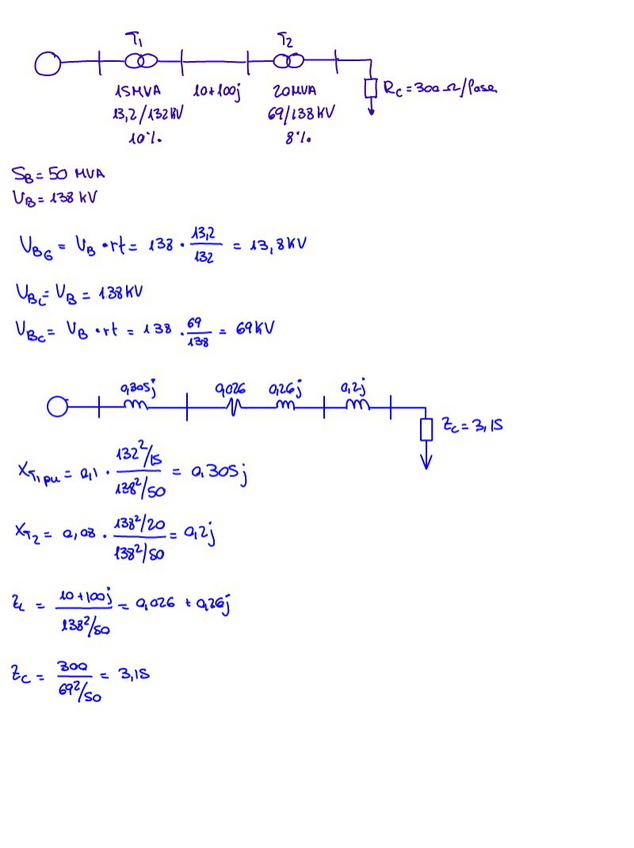 T₁ T₂
15MVA 10+100j 20MVA Rc=300Ω/fase
13,2/132kV 69/138kV
10% 8%
S_B = 50 MVA
U_B = 138 kV
U_BG = U_B · rt = 138 · 13,2/132 = 13,8kV
U_BL = U_B = 138kV
U_BC = U_B · rt = 138 · 69/138 = 69kV
0,305j 0,026 0,26j 0,2j
Zc = 3,15
X_T1pu = 0,1 · (132²/15)/(138²/50) = 0,305j
X_T2 = 0,08 · (138²/20)/(138²/50) = 0,2j
Z_L = (10+100j)/(138²/50) = 0,026 + 0,26j
Z_C = 300/(69²/50) = 3,15